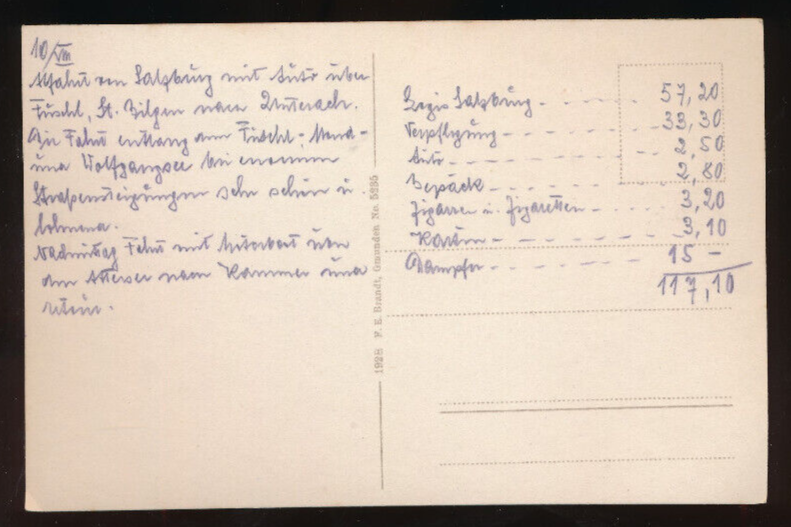 10/VIII
Abfahrt von Salzburg mit Auto über
Fuschl, St. Gilgen nach Unterach.
Die Fahrt entlang am Fuschl-, Mond-
und Wolfgangsee bei enormen
Straßensteigungen sehr schön u.
lohnend.
Nachmittag Fahrt mit Motorboot über
den Attersee nach Kammer und
retour.
1928 F. E. Brandt, Gmunden No. 5895
Regie Salzburg - - - - - 57,20
Verpflegung - - - - - 33,30
Auto - - - - - 2,50
Gepäck - - - - - 2,80
Zigarren u. Zigaretten - - - 3,20
Karten - - - - - 3,10
Dampfer - - - - - 15 -
117,10